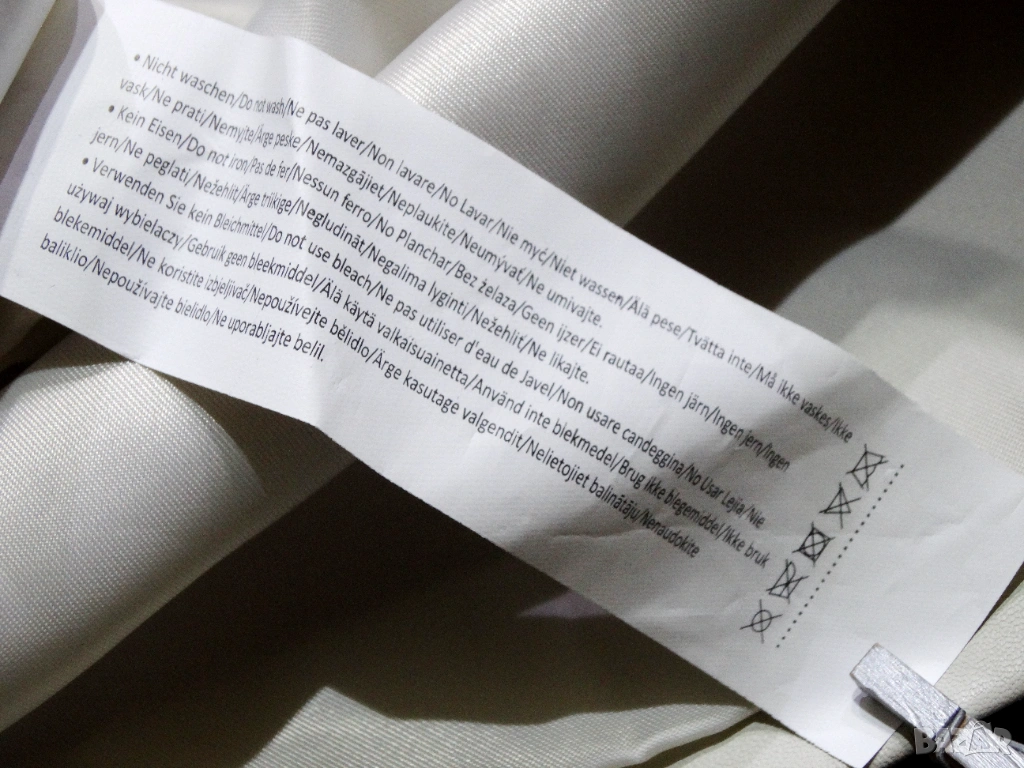 • Nicht waschen/Do not wash/Ne pas laver/Non lavare/No Lavar/Nie myć/Niet wassen/Älä pese/Tvätta inte/Må ikke vaskes/Ikke
vask/Ne prati/Nemyjte/Ärge peske/Nemazgājiet/Neplaukite/Neumývať/Ne umivajte.
• Kein Eisen/Do not iron/Pas de fer/Nessun ferro/No Planchar/Bez żelaza/Geen ijzer/Ei rautaa/Ingen järn/Ingen jern/Ingen
jern/Ne peglati/Nežehlit/Ärge triikige/Negludināt/Negalima lyginti/Nežehliť/Ne likajte.
• Verwenden Sie kein Bleichmittel/Do not use bleach/Ne pas utiliser d'eau de Javel/Non usare candeggina/No Usar Lejía/Nie
używaj wybielaczy/Gebruik geen bleekmiddel/Älä käytä valkaisuainetta/Använd inte blekmedel/Brug ikke blegemiddel/Ikke bruk
blekemiddel/Ne koristite izbjeljivač/Nepoužívejte bělidlo/Ärge kasutage valgendit/Nelietojiet balinātāju/Nenaudokite
baliklio/Nepoužívajte bielidlo/Ne uporabljajte belil.
BAZAR